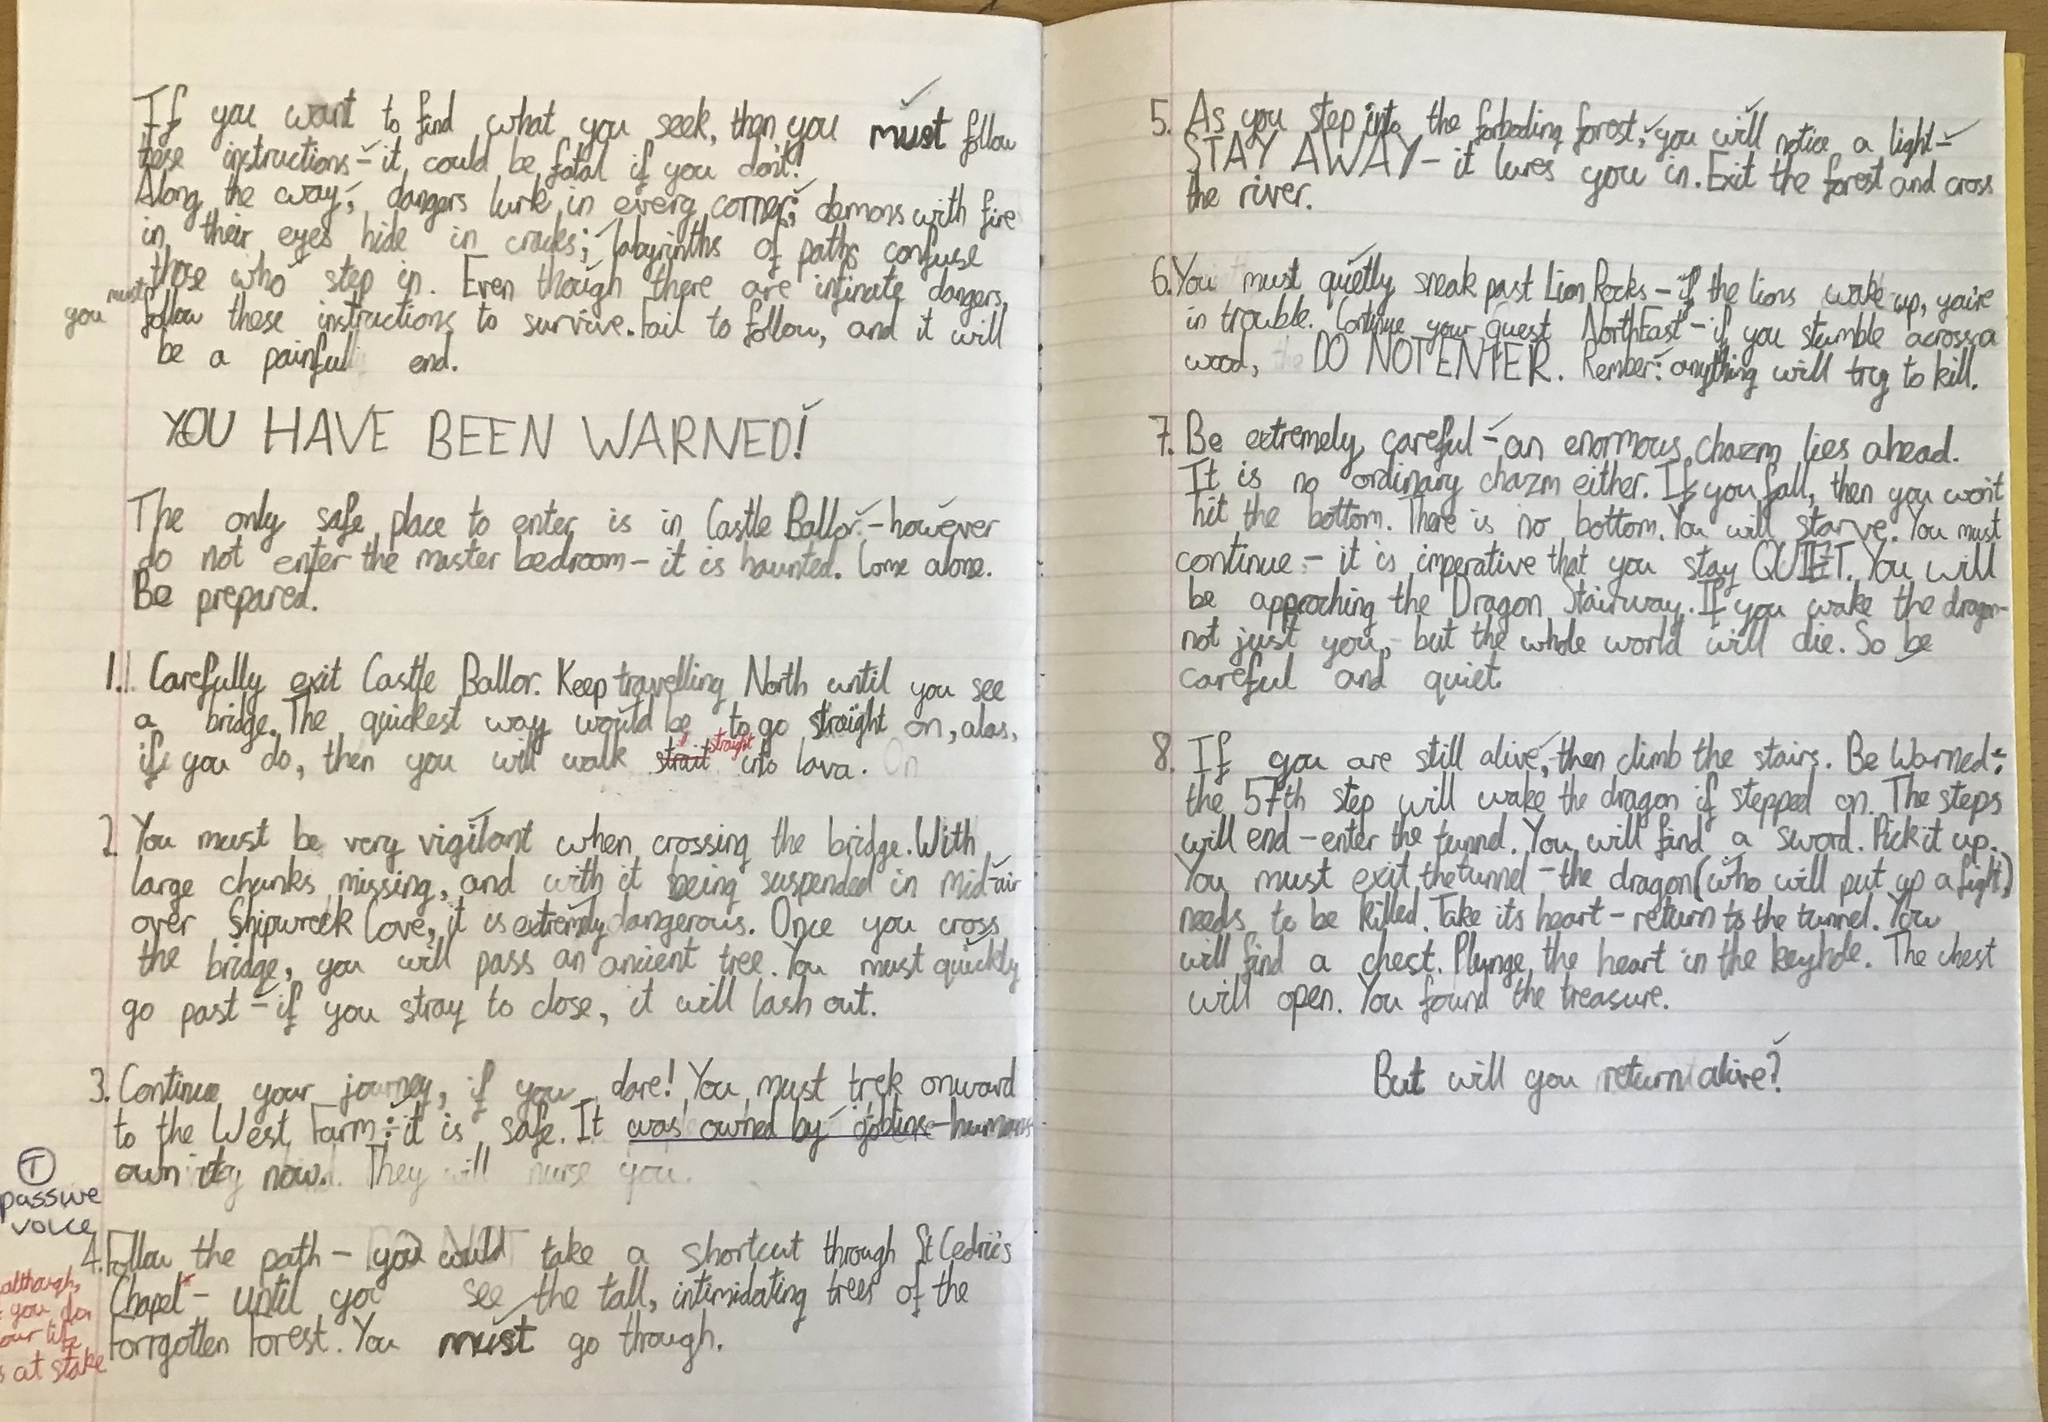 If you want to find what you seek, then you must follow
these instructions - it could be fatal if you don't!
Along the way, dangers lurk in every corner; demons with fire
in their eyes hide in cracks; labyrinths of paths confuse
those who step in. Even though there are infinate dangers,
you must follow these instructions to survive. Fail to follow, and it will
be a painful end.
YOU HAVE BEEN WARNED!
The only safe place to enter is in Castle Ballor - however
do not enter the master bedroom - it is haunted. Come alone.
Be prepared.
1. Carefully exit Castle Ballor. Keep travelling North until you see
a bridge. The quickest way would be to go straight on, alas,
if you do, then you will walk strait straight into lava. On
2. You must be very vigilant when crossing the bridge. With
large chunks missing, and with it being suspended in mid-air
over Shipwreck Cove, it is extremely dangerous. Once you cross
the bridge, you will pass an ancient tree. You must quickly
go past - if you stray to close, it will lash out.
3. Continue your journey, if you dare! You must trek onward
to the West Farm: it is safe. It was owned by goblins - humans
own it now. They will nurse you.
T
passive
voice
4. Follow the path - you could take a shortcut through St Cedric's
Chapel* - until you see the tall, intimidating trees of the
Forrgotten Forest. You must go though.
although,
you do,
our life
at stake
5. As you step into the forboding forest, you will notice a light -
STAY AWAY - it lures you in. Exit the forest and cross
the river.
6. You must quietly sneak past Lion Rocks - if the lions wake up, you're
in trouble. Continue your quest NorthEast - if you stumble across a
wood, the DO NOT ENTER. Rember: anything will try to kill.
7. Be extremely careful - an enormous chazm lies ahead.
It is no ordinary chazm either. If you fall, then you won't
hit the bottom. There is no bottom. You will starve. You must
continue - it is imperative that you stay QUIET. You will
be approching the Dragon Stairway. If you wake the dragon -
not just you, but the whole world will die. So be
careful and quiet.
8. If you are still alive, then climb the stairs. Be Warned:
the 57th step will wake the dragon if stepped on. The steps
will end - enter the tunnel. You will find a sword. Pick it up.
You must exit the tunnel - the dragon (who will put up a fight)
needs to be killed. Take its heart - return to the tunnel. You
will find a chest. Plunge the heart in the keyhole. The chest
will open. You found the treasure.
But will you return alive?